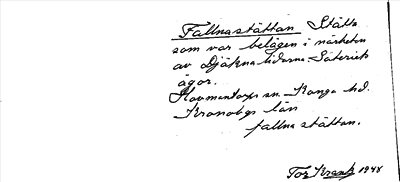 Fallnastättan Ställe
som var belägen i närheten
av Djäknalidarna Säteriets
ägor.
Hovmantorps sn. Konga hd.
Kronobgs län
fallna stättan.
Tor 1948